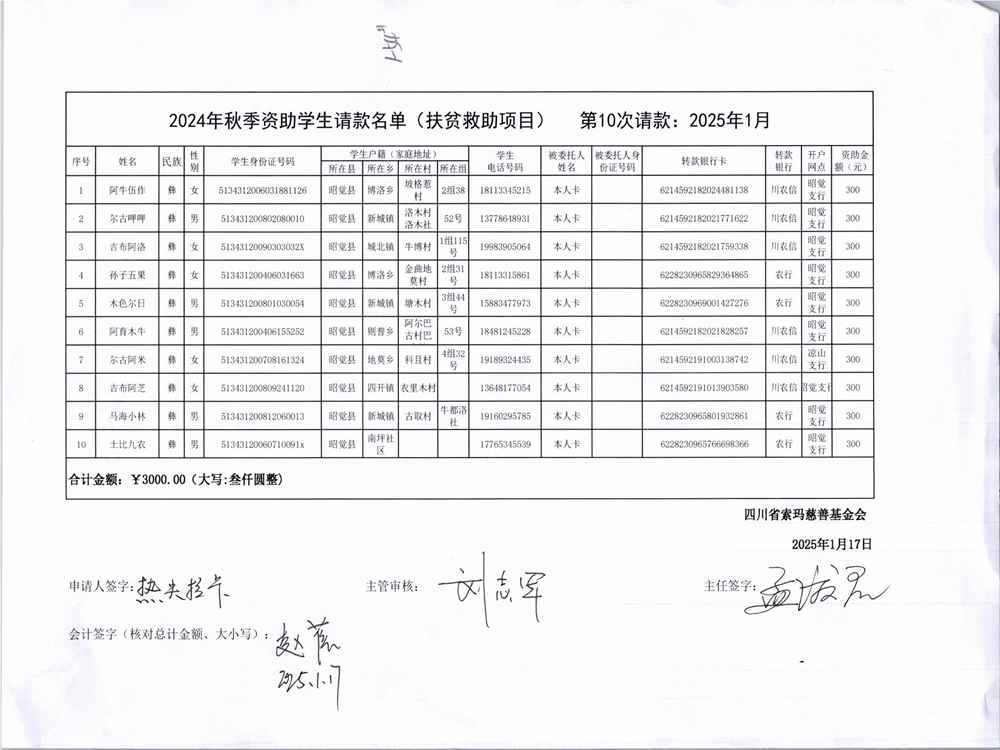 2024年秋季资助学生请款名单（扶贫救助项目） 第10次请款：2025年1月
序号 姓名 民族 性别 学生身份证号码 学生户籍（家庭地址） 学生电话号码 被委托人姓名 被委托人身份证号码 转款银行卡 转款银行 开户网点 资助金额（元）
所在县 所在乡 所在村 所在组
1 阿牛伍作 彝 女 5134312006031881126 昭觉县 博洛乡 坡格惹村 2组38 18113345215 本人卡 6214592182024481138 川农信 昭觉支行 300
2 尔古呷呷 彝 男 513431200802080010 昭觉县 新城镇 洛木村洛木社 52号 13778648931 本人卡 6214592182021771622 川农信 昭觉支行 300
3 吉布阿洛 彝 女 51343120090303032X 昭觉县 城北镇 牛博村 1组115号 19983905064 本人卡 6214592182021759338 川农信 昭觉支行 300
4 孙子五果 彝 女 513431200406031663 昭觉县 博洛乡 金曲地莫村 2组31号 18113315861 本人卡 6228230965829364865 农行 昭觉支行 300
5 木色尔日 彝 男 513431200801030054 昭觉县 新城镇 塘木村 3组44号 15883477973 本人卡 6228230969001427276 农行 昭觉支行 300
6 阿育木牛 彝 男 513431200406155252 昭觉县 则普乡 阿尔巴古村巴 53号 18481245228 本人卡 6214592182021828257 川农信 昭觉支行 300
7 尔古阿米 彝 女 513431200708161324 昭觉县 地莫乡 科且村 4组32号 19189324435 本人卡 6214592191003138742 川农信 凉山支行 300
8 吉布阿芝 彝 女 513431200809241120 昭觉县 四开镇 农里木村 13648177054 本人卡 6214592191013903580 川农信 昭觉支行 300
9 马海小林 彝 男 513431200812060013 昭觉县 新城镇 古取村 牛都洛社 19160295785 本人卡 6228230965801932861 农行 昭觉支行 300
10 土比九农 彝 男 51343120060710091x 昭觉县 南坪社区 17765345539 本人卡 6228230965766698366 农行 昭觉支行 300
合计金额：￥3000.00（大写:叁仟圆整）
四川省索玛慈善基金会
2025年1月17日
申请人签字: 热夫拉卡 主管审核: 刘志军 主任签字:
会计签字（核对总计金额、大小写）: 赵
2025.1.17